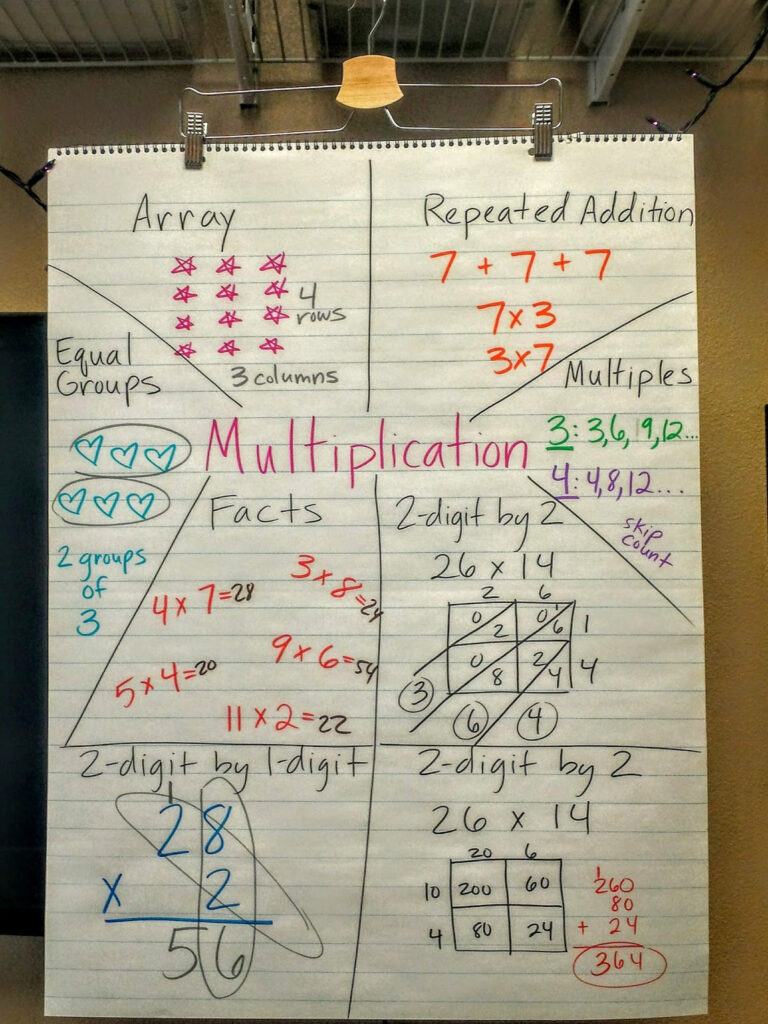 Array
4
rows
3 columns
Repeated Addition
7 + 7 + 7
7 x 3
3 x 7
Equal
Groups
2 groups
of
3
Multiplication
Multiples
3: 3,6,9,12...
4: 4,8,12...
skip
count
Facts
3 x 8=24
4 x 7=28
9 x 6=54
5 x 4=20
11 x 2=22
2-digit by 2
26 x 14
2 6
0 2 0 1 6 1
0 8 2 4 4
3 6 4
2-digit by 1-digit
1
28
x 2
56
2-digit by 2
26 x 14
20 6
10 200 60
4 80 24
1
260
80
+ 24
364